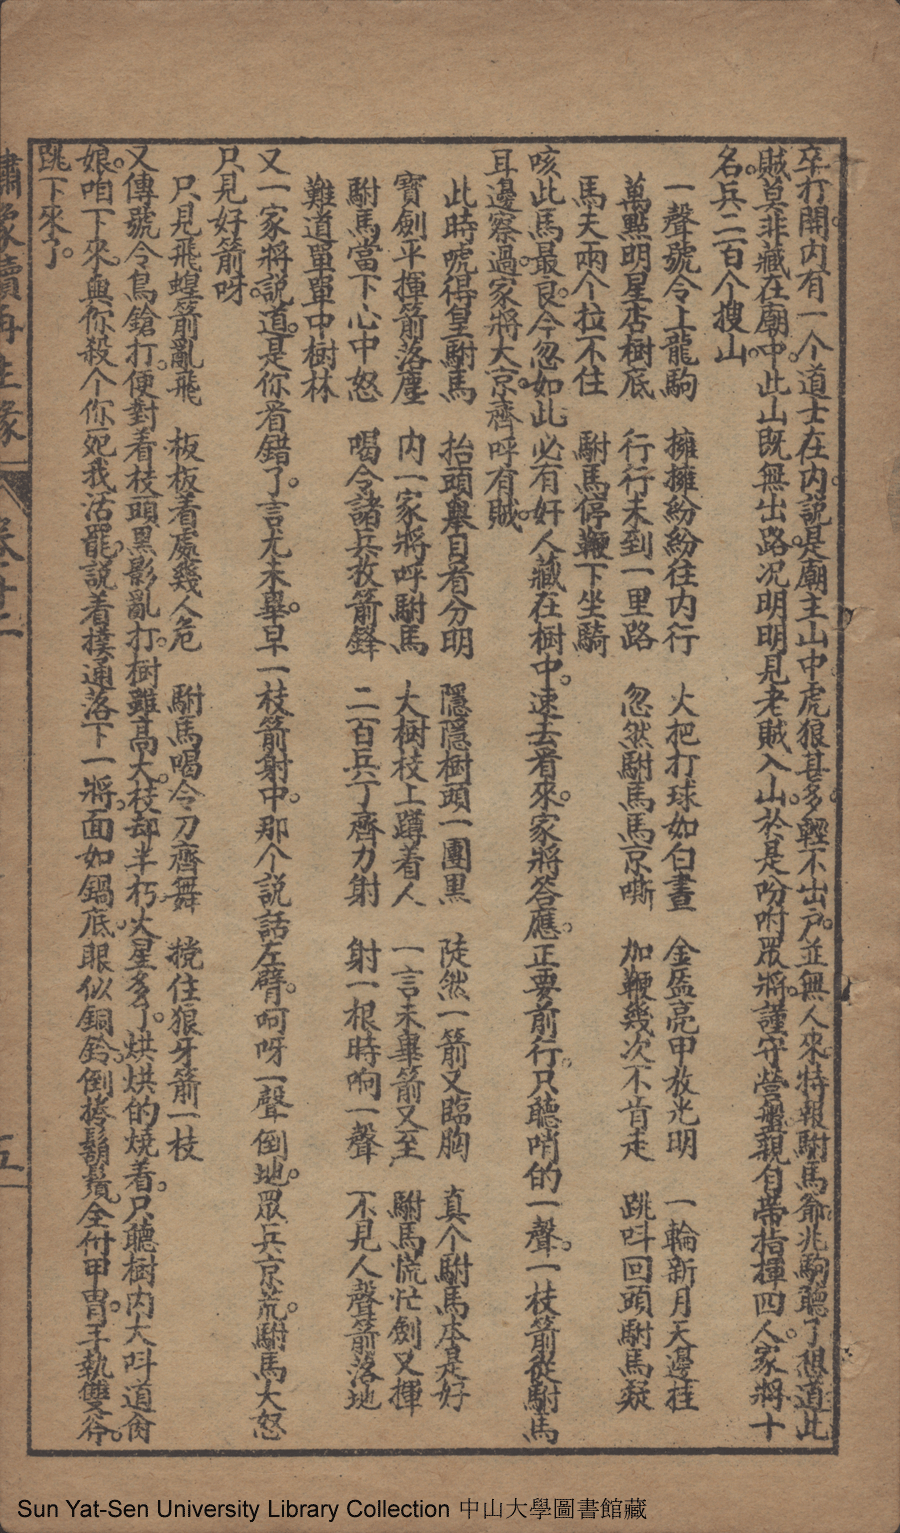 卒打開內有一个道士在内説是廟主山中虎狼甚多輕不出户並無人來特報駙馬爺兆駒聽了想道此
賊莫非藏在廟中此山既無出路况明明見老賊入山於是吩咐眾將謹守營盤親自帶指揮四人家將十
名兵二百个搜山
一聲號令上龍駒　擁擁紛紛往内行　火把打球如白晝　金盔亮甲放光明　一輪新月天邊挂
萬點明星杏樹底　行行未到一里路　忽然駙馬馬京嘶　加鞭幾次不肯走　跳呌回頭駙馬疑
馬夫兩个拉不住　駙馬停鞭下坐騎
咳此馬最良今忽如此必有奸人藏在樹中速去看來家將答應正要前行只聽哨的一聲一枝箭從駙馬
耳邊察過家將大京齊呼有賊
此時唬得皇駙馬　抬頭舉目看分明　隱隱樹頭一團黑　陡然一箭又臨胸　真个駙馬本是好
寶劍平揮箭落塵　内一家將呼駙馬　大樹枝上蹲着人　一言未畢箭又至　駙馬慌忙劍又揮
駙馬當下心中怒　喝令諸兵放箭鋒　二百兵丁齊力射　射一根時响一聲　不見人聲箭落地
難道單單中樹林
又一家將説道是你看錯了言尤未畢早一枝箭射中那个説話左臂呵呀一聲倒地眾兵京荒駙馬大怒
只見好箭呀
只見飛蝗箭亂飛　板板着處幾人危　駙馬喝令刀齊舞　撓住狼牙箭一枝
又傳號令鳥鎗打便對着枝頭黑影亂打樹雖高大枝却半朽火星多了烘烘的燒着只聽樹内大呌道肏
娘咱下來與你殺个你死我活罷説着撲通落下一將面如鍋底眼似銅鈴倒捲鬍鬚全付甲胄手執雙斧
跳下來了
繡像續再生緣
卷十二
五
Sun Yat-Sen University Library Collection 中山大學圖書館藏